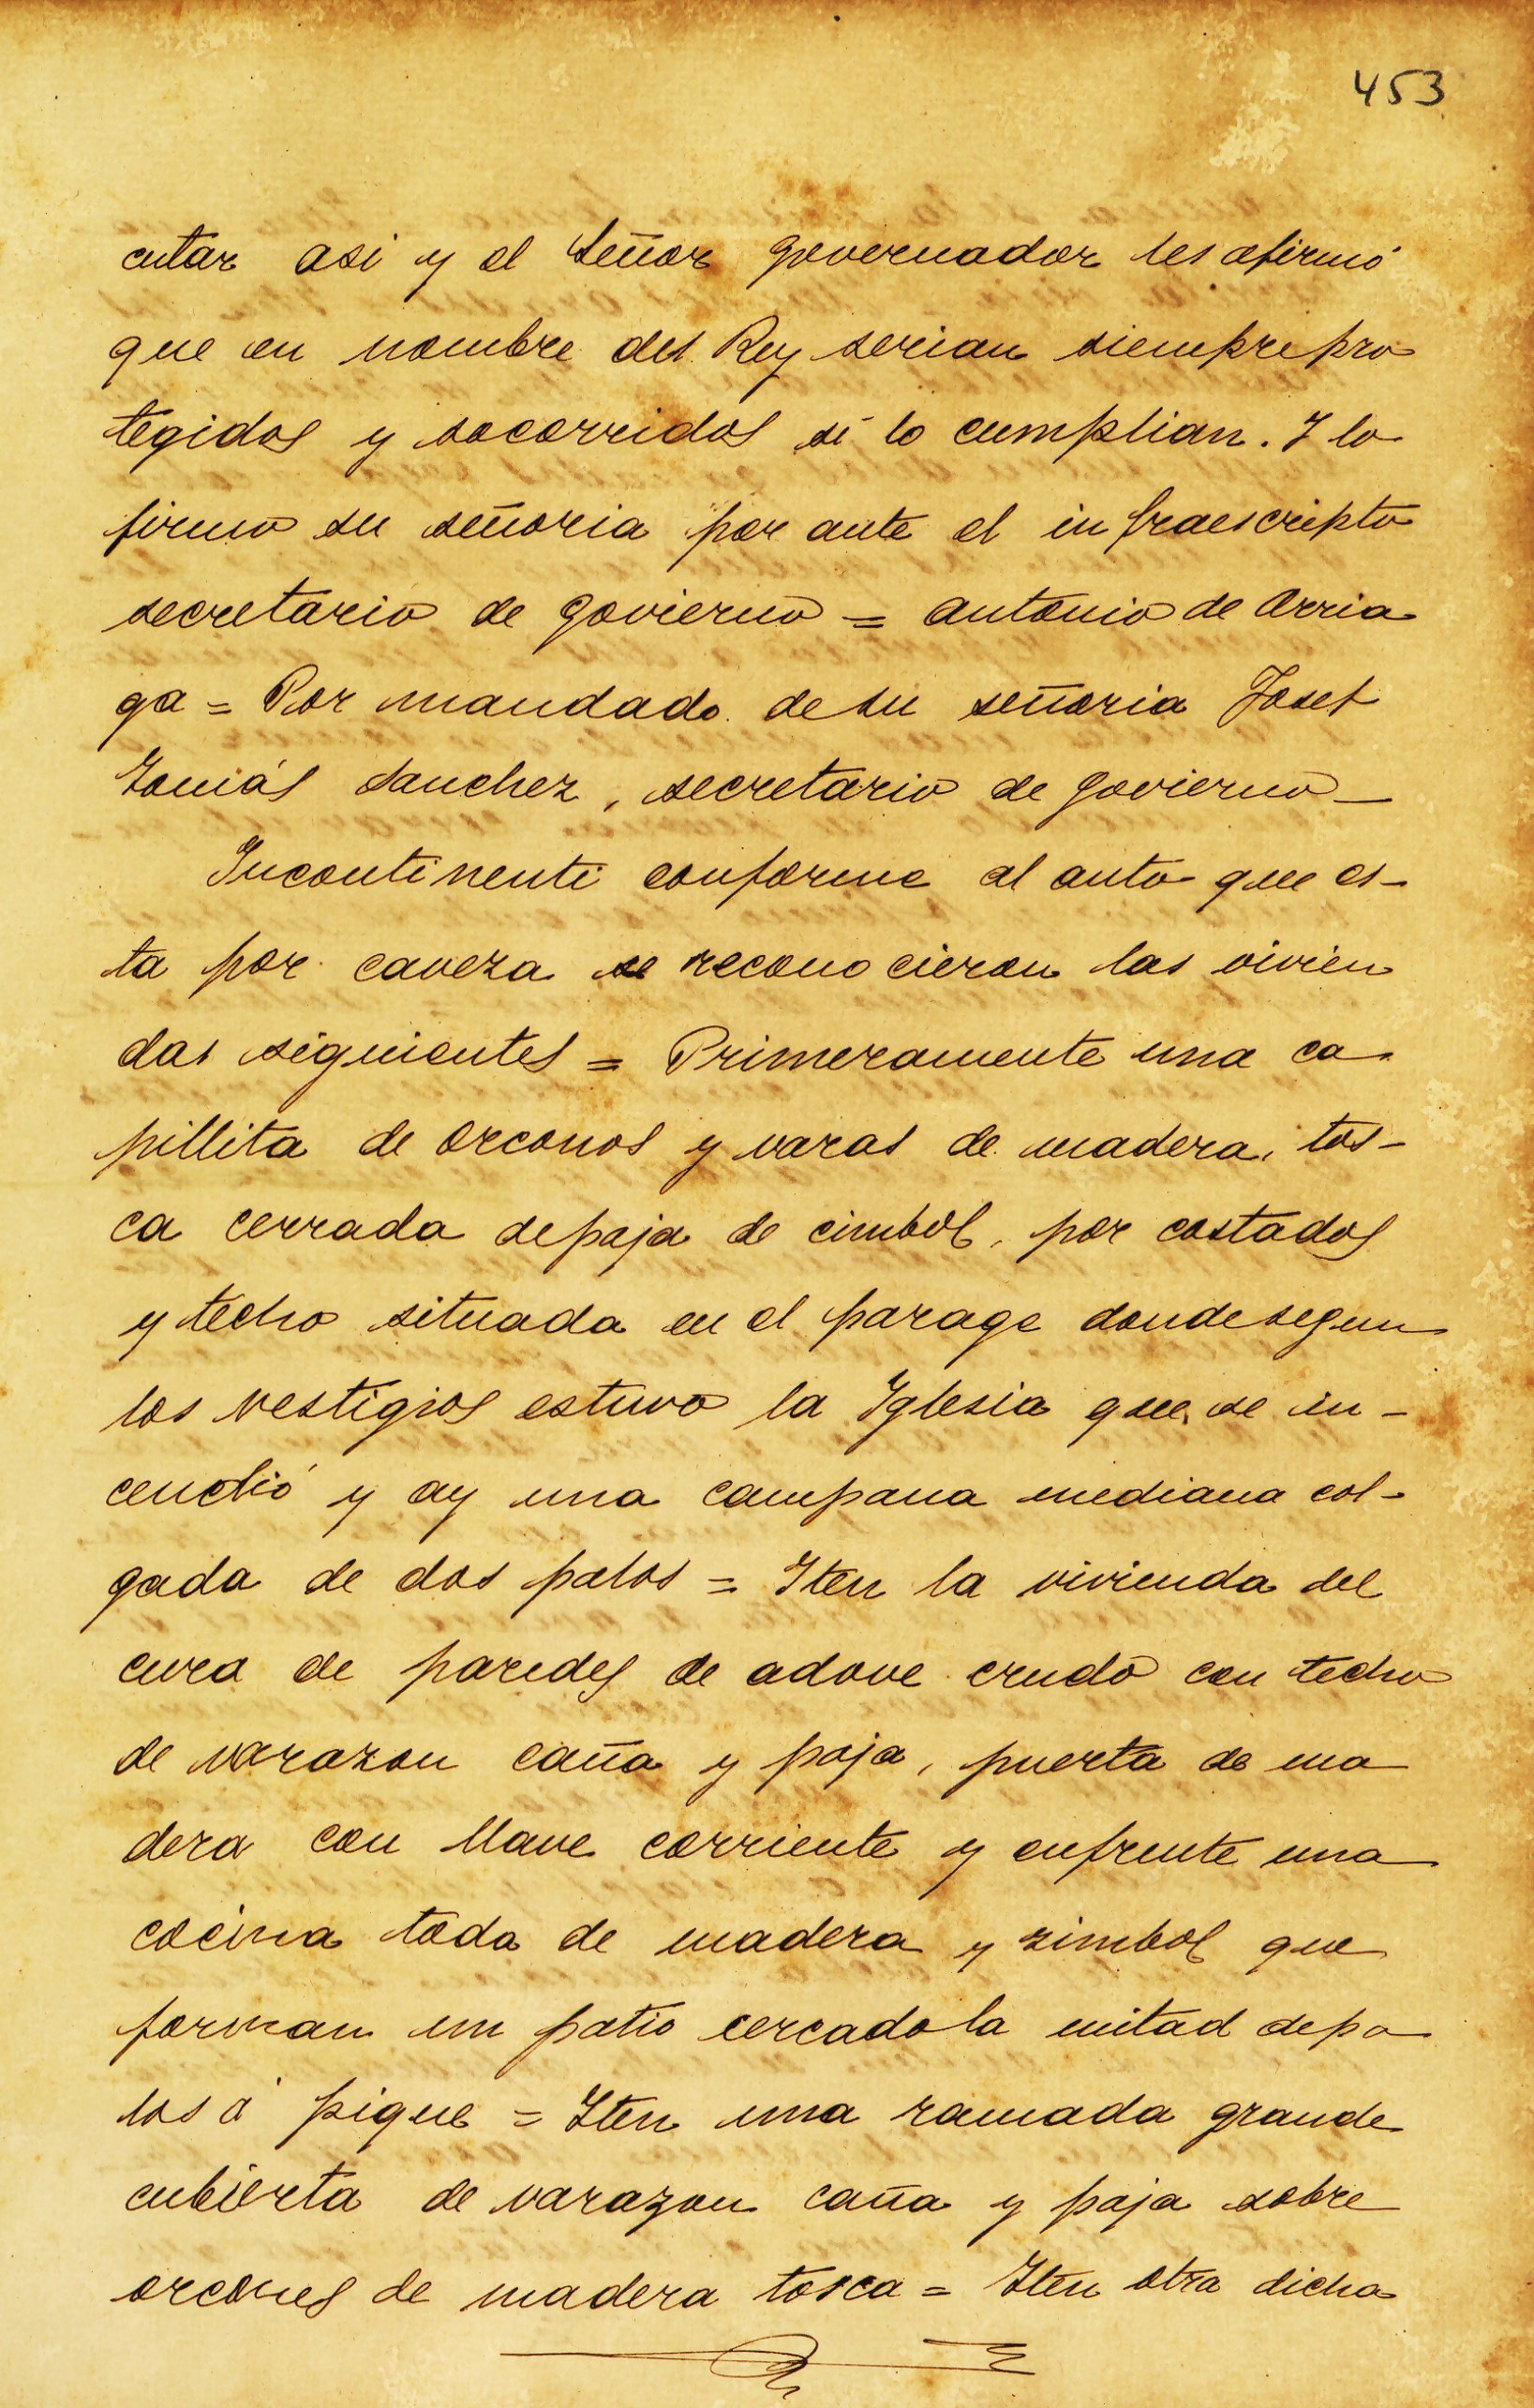 453
cutar asi y el Señor Governador les afirmó
que en nombre del Rey serian siempre pro
tegidos y socorridos si lo cumplian. Y lo
firmo su señoria por ante el infraescripto
secretario de Govierno = Antonio de Arria
ga = Por mandado de su señoria Josef
Tomás Sanchez, secretario de Govierno —
Incontinenti conforme al auto que es-
ta por caveza se reconocieron las vivien
das siguientes = Primeramente una ca
pillita de orconos y varas de madera, tos-
ca cerrada de paja de cimbol, por costados
y techo situada en el parage donde segun
los vestigios estuvo la Iglesia que se in-
cendió y ay una campana mediana col-
gada de dos palos = Iten la vivienda del
cura de paredes de adove crudo con techo
de varazon caña y paja, puerta de ma
dera con llave corriente y enfrente una
cocina toda de madera y zimbol que
forman un patio cercado la mitad de pa
los á pique = Iten una ramada grande
cubierta de varazon caña y paja sobre
orcones de madera tosca = Iten otra dicha